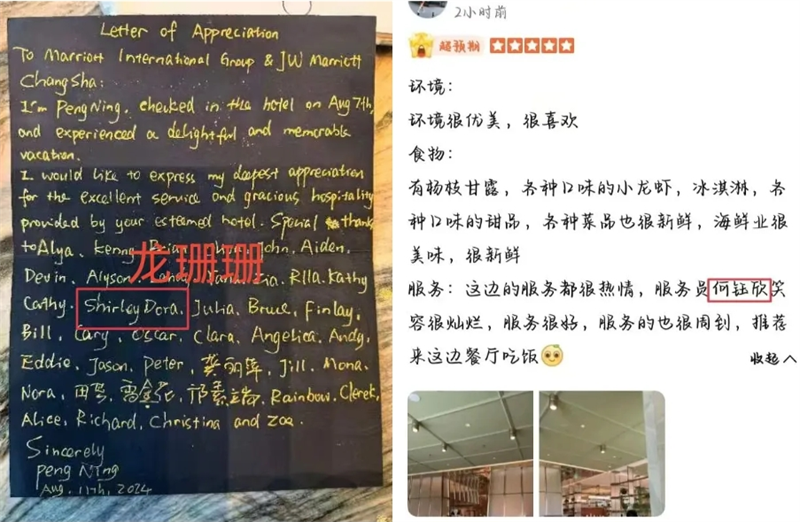 Letter of Appreciation
To Marriott International Group & JW Marriott
ChangSha:
I'm PengNing, checked in the hotel on Aug 7th,
and experienced a delightful and memorable
vacation.
I would like to express my deepest appreciation
for the excellent service and gracious hospitality
provided by your esteemed hotel. Special thanks
to Alya, Kenny, John, Aiden,
龙珊珊
Devin, Alyson, Rlla, Kathy
Cathy, Shirley Dora, Julia, Bruce, Finlay,
Bill, Cary, Oscar, Clara, Angelica, Andy,
Eddie, Jason, Peter, 龚丽萍, Jill, Mona,
Nora, Rainbow, Clerek,
Alice, Richard, Christina and Zoe
Sincerely
Peng Ning
Aug. 11th, 2024
2小时前
超预期
环境：
环境很优美，很喜欢
食物：
有杨枝甘露，各种口味的小龙虾，冰淇淋，各
种口味的甜品，各种菜品也很新鲜，海鲜业很
美味，很新鲜
服务：这边的服务都很热情，服务员何钰欣笑
容很灿烂，服务很好，服务的也很周到，推荐
来这边餐厅吃饭
收起